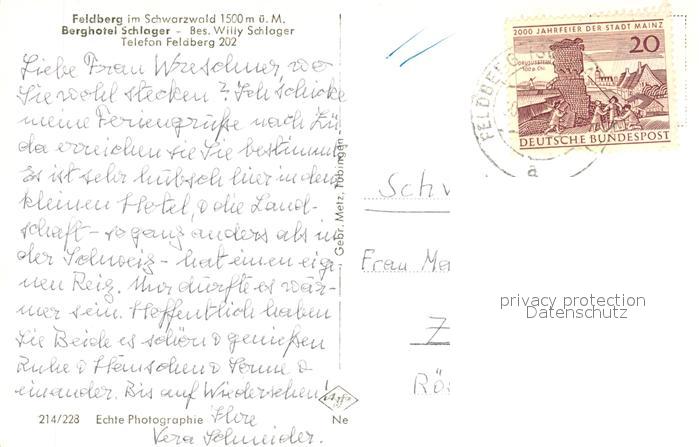 Feldberg im Schwarzwald 1500 m ü. M.
Berghotel Schlager – Bes. Willy Schlager
Telefon Feldberg 202
Liebe Frau Wreschner, wo
Sie wohl stecken? Ich schicke
meine Feriengrüße nach Zü
da erreichen sie Sie bestimmt
Es ist sehr hübsch hier in dem
kleinen Hotel, & die Land-
schaft – so ganz anders als in
der Schweiz – hat einen eige
nen Reiz. Nur dürfte es wär-
mer sein. Hoffentlich haben
Sie Beide es schön & genießen
Ruhe & Häuschen & Sonne &
einander. Bis auf Wiedersehen!
Ihre
Vera Schneider.
214/228 Echte Photographie
Agfa
Ne
Gebr. Metz, Tübingen
2000 JAHRFEIER DER STADT MAINZ
DRUSUSSTEIN
100 n. Chr.
20
DEUTSCHE BUNDESPOST
FELDBERG
a
Schw
Frau Ma
Z
Rö
privacy protection
Datenschutz